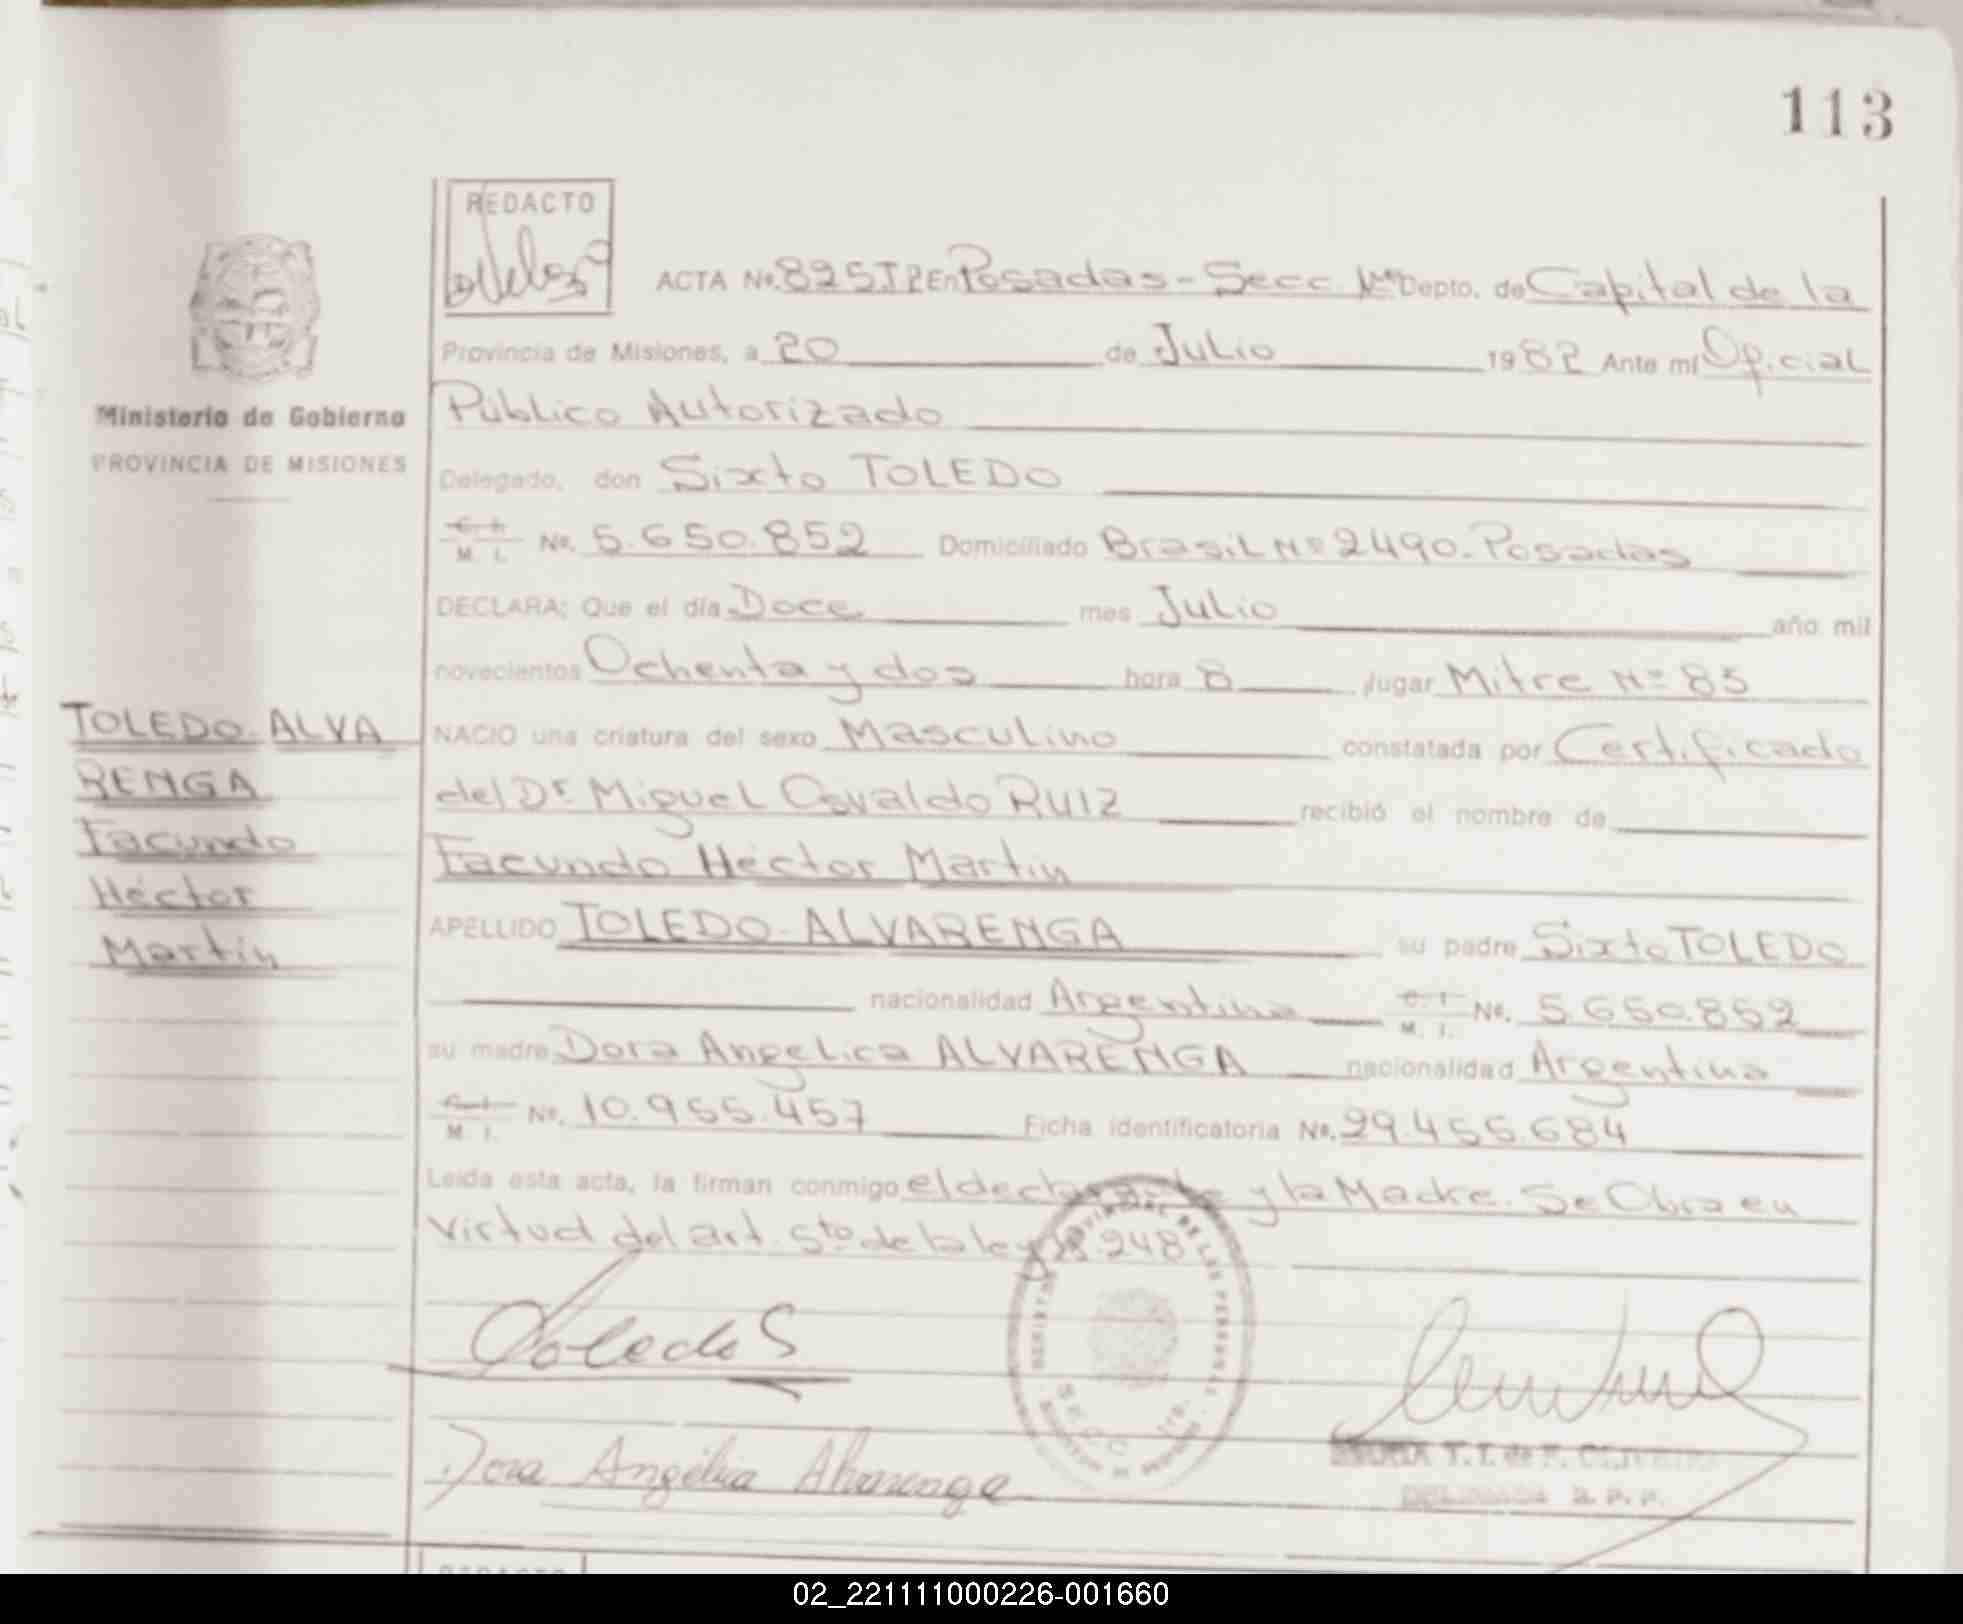 113
REDACTO
ACTA No. 825 T2 En Posadas - Secc. 1ra Depto. de Capital de la
Provincia de Misiones, a 20 de Julio 1982 Ante mí Oficial
Público Autorizado
Ministerio de Gobierno
PROVINCIA DE MISIONES
Delegado, don Sixto TOLEDO
C. I.
M. I. No. 5.650.852 Domiciliado Brasil Nº 2490. Posadas
DECLARA: Que el día Doce mes Julio año mil
novecientos Ochenta y dos hora 8 lugar Mitre Nº 85
TOLEDO-ALVA
RENGA
Facundo
Héctor
Martín
NACIO una criatura del sexo Masculino constatada por Certificado
del Dr Miguel Osvaldo RUIZ recibió el nombre de
Facundo Héctor Martín
APELLIDO TOLEDO-ALVARENGA su padre Sixto TOLEDO
nacionalidad Argentina C. I.
M. I. No. 5.650.852
su madre Dora Angelica ALVARENGA nacionalidad Argentina
C. I.
M. I. No. 10.955.457 Ficha identificatoria No. 29.455.684
Leída esta acta, la firman conmigo el declarante y la Madre. Se Obra en
virtud del art. 5to de la ley 18.248
Toledo S
Dora Angélica Alvarenga
SECC. 1ra.
REDACTO
02_221111000226-001660